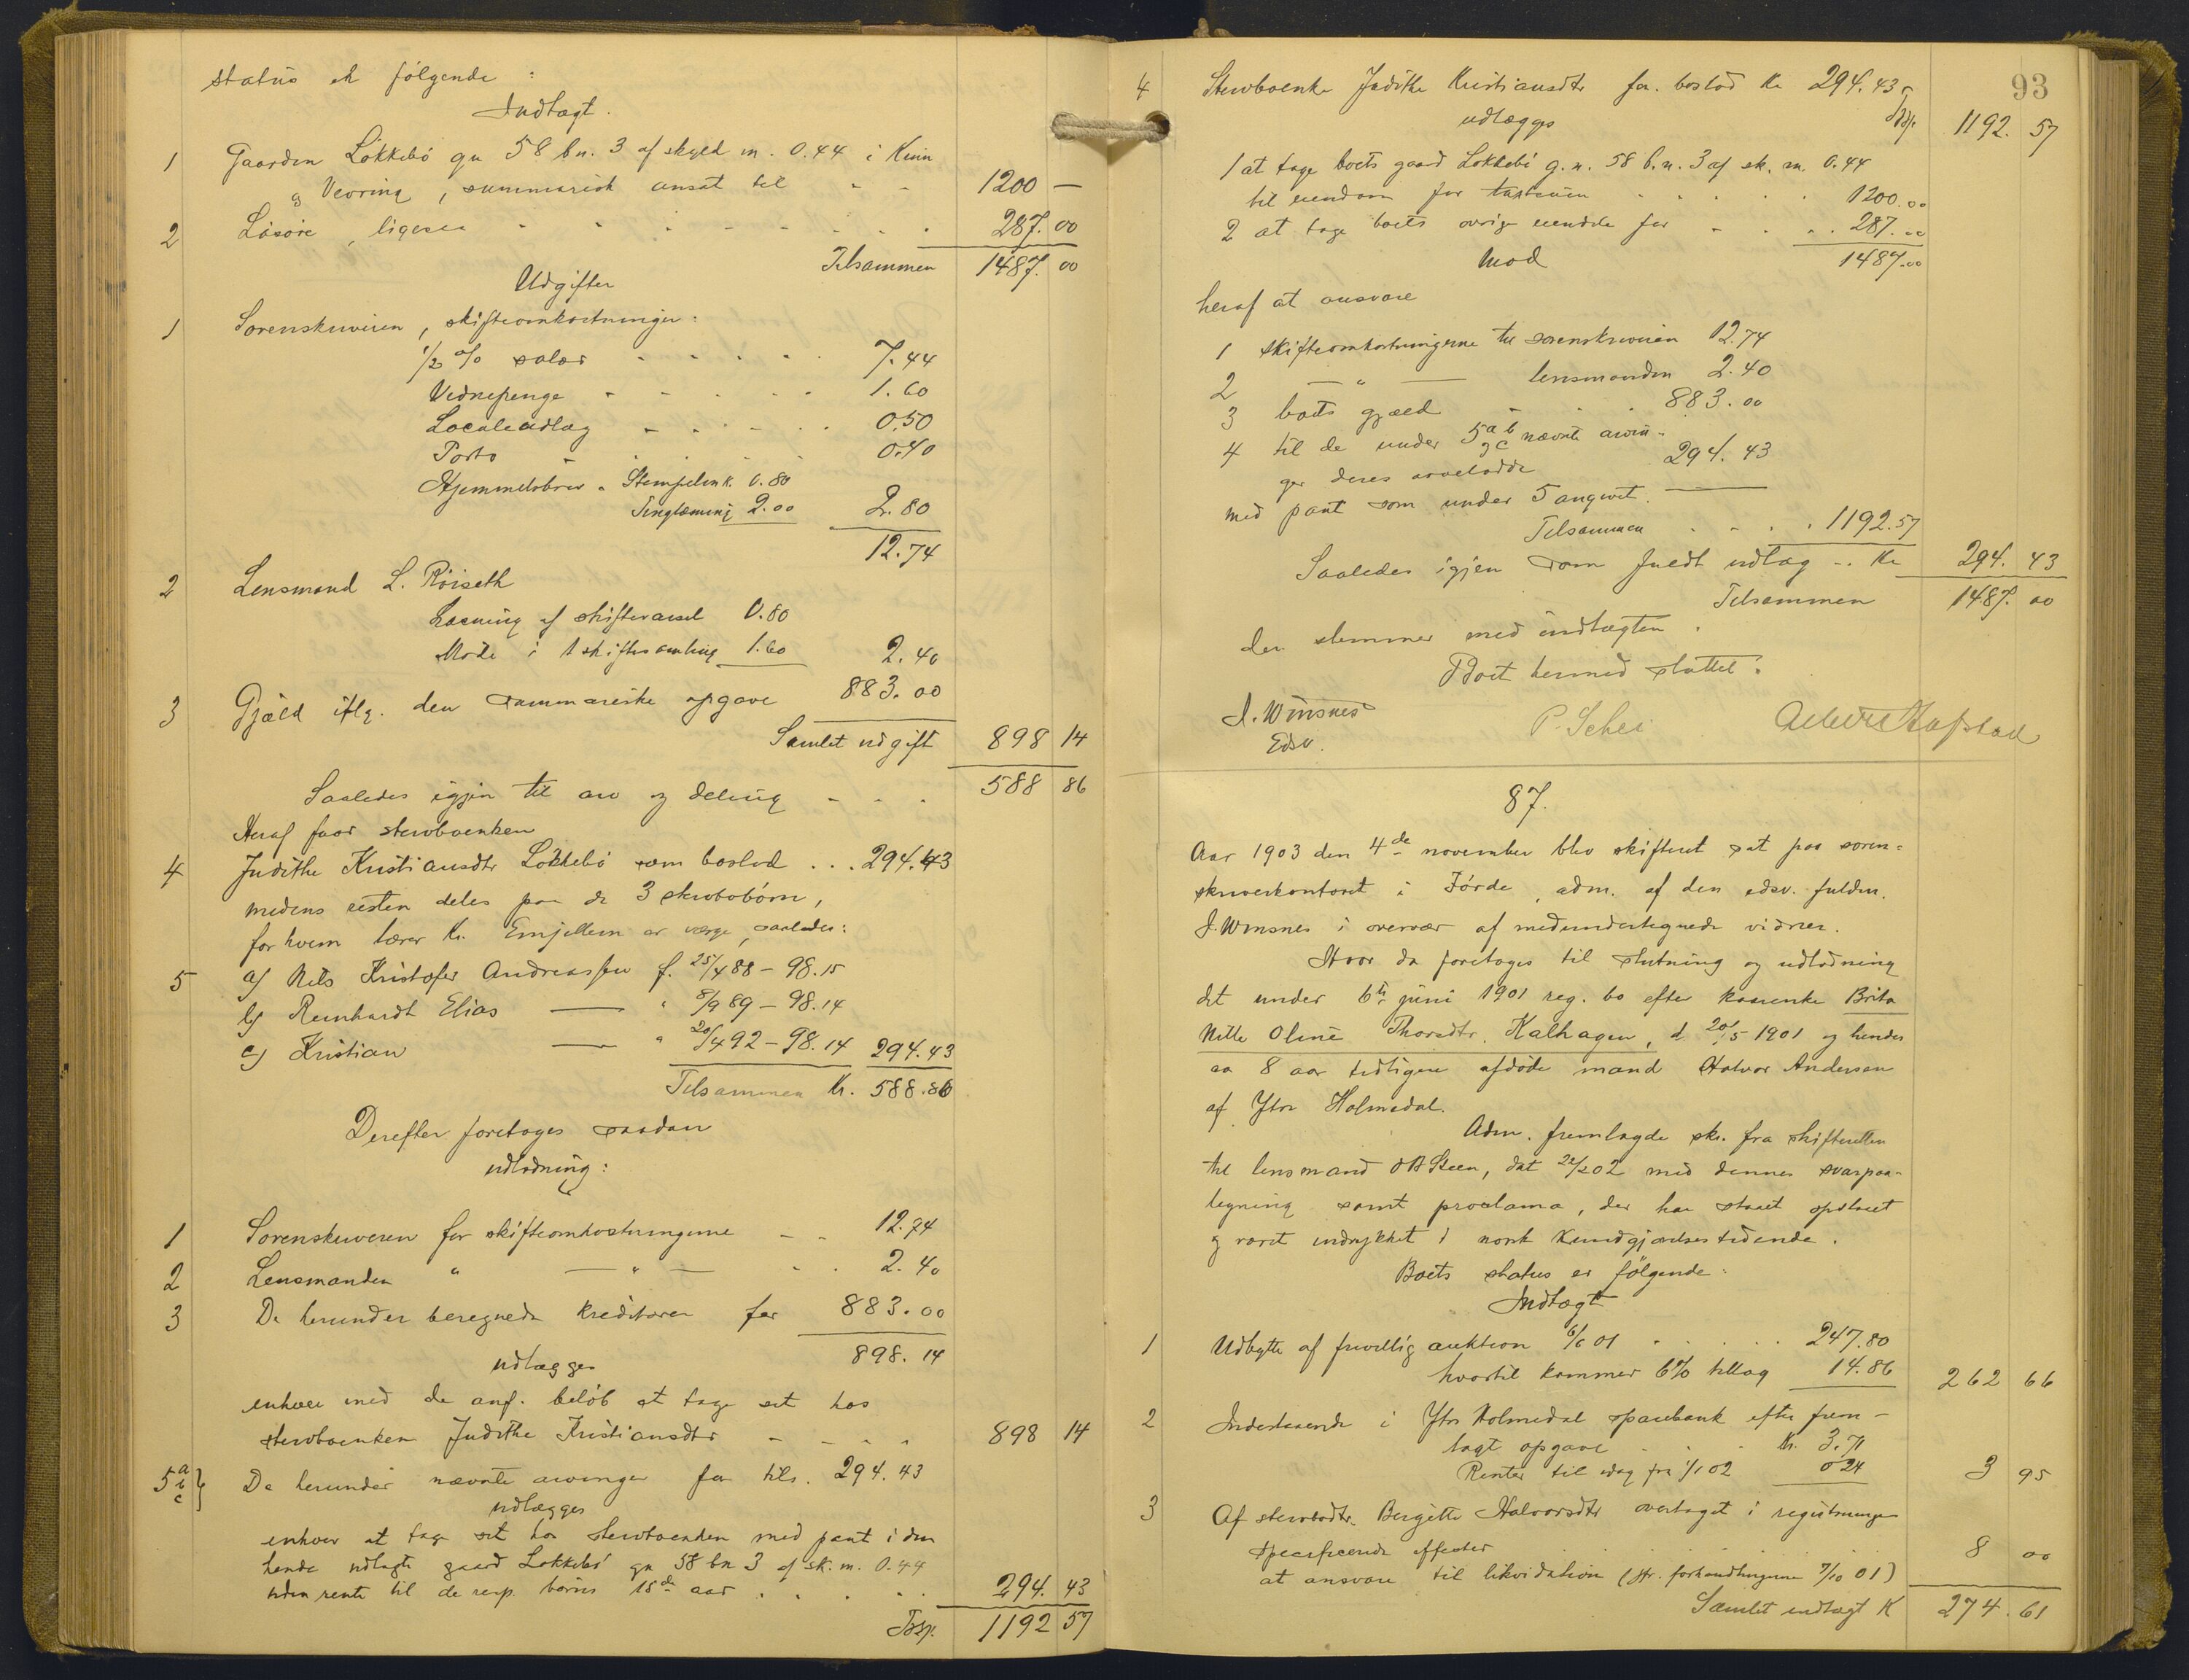 status er følgende :
Indtægt.
1 Gaarden Løkkebø gn 58 bn. 3 af skyld m. 0.44 i Kinn
og Vevring, summarisk ansat til - - 1200 —
2 Løsøre, ligesaa - - - - - - 287. 00
Tilsammen 1487. 00
Udgifter
1 Sorenskriveren, skifteomkostninger:
1/2 % salær - - - - - 7.44
Vidnepenge - - - - - 1.60
Localeudlæg - - - - - 0.50
Porto - - - - 0.40
Hjemmelsbrev - Stempelm k. 0.80
Tinglæsning 2.00 2.80
12.74
2 Lensmand L. Røiseth
Læsning af skiftevarsel 0.80
Møde i 1 skiftesamling 1.60 2.40
3 Gjæld iflg. den summariske opgave 883.00
Samlet udgift 898 14
Saaledes igjen til arv og deling - - - 588 86
Heraf faar stervboenken
4 Judithe Kristiansdtr Løkkebø som boslod . . . 294.43
medens resten deles paa de 3 stervbobørn,
for hvem lærer Kr. Emjellem er værge, saaledes:
5 a) Nils Kristofer Andreassen f. 25/4 88 - 98.15
b) Reinhardt Elias — " 8/9 89 - 98.14
c) Kristian — " 20/4 92 - 98.14 294.43
Tilsammen Kr. 588.86
Derefter foretoges saadan
udlodning:
1 Sorenskriveren for skifteomkostningerne - - 12.74
2 Lensmanden " — " — - - 2.40
3 De herunder beregnede kreditorer for 883.00
udlægges 898.14
enhver med de anf. beløb at tage ret hos
stervboenken Judithe Kristiansdtr - - - - 898 14
5 a b c } De herunder nævnte arvinger for tils. 294.43
udlægges
enhver at tage ret hos stervboenken med pant i den
hende udlagte gaard Løkkebø gn 58 bn 3 af sk. m. 0.44
uden rente til de resp. børns 18de aar . . . . 294. 43
Trsp. 1192 57
93
4 Stervboenke Judithe Kristiansdtr for boslod Kr 294.43
udlægges Trsp. 1192. 57
1 at tage boets gaard Løkkebø g.n. 58 b.n. 3 af sk. m. 0.44
til eiendom for taxtsum - - - - 1200.00
2 at tage boets øvrige eiendele for - - - 287.00
Mod 1487.00
heraf at ansvare
1 skifteomkostningerne til sorenskriveren 12.74
2 — " — lensmanden 2.40
3 boets gjæld - - - 883.00
4 til de under 5 a b og c nævnte arvin-
ger deres arvelodde 294.43
med pant som under 5 angivet. —
Tilsammen - - - - 1192.57
Saaledes igjen som fuldt udlæg - - Kr 294. 43
Tilsammen 1487. 00
der stemmer med indtægten.
Boet hermed sluttet.
J. Winsnes
Edsv.
P. Schei
87.
Aar 1903 den 4de november blev skifteret sat paa soren-
skriverkontoret i Førde, adm. af den edsv. fuldm.
J. Winsnes i overvær af medundertegnede vidner.
Hvor da foretoges til slutning og udlodning
det under 6te juni 1901 reg. bo efter kaarenke Brita
Nille Oline Thorsdtr. Kalhagen, d. 20/5 1901 og hendes
ca 8 aar tidligere afdøde mand Halvor Andersen
af Ytre Holmedal.
Adm. fremlagde skr. fra skifteretten
til lensmand O B Steen, dat 22/2 02 med dennes svarpaa-
tegning samt proclama, der har staaet opslaaet
og været indrykket i norsk Kundgjørelsestidende.
Boets status er følgende:
Indtægt
1 Udbytte af frivillig auktion 6/6 01 - - - - 247.80
hvortil kommer 6% tillæg 14.86 262 66
2 Indestaaende i Ytre Holmedal sparebank efter frem-
lagt opgave - - - Kr. 3.71
Renter til idag fra 1/1 02 0 24 3 95
3 Af stervbodtr. Bergitte Halvorsdtr overtaget i registreringen
specificerede effecter . . . . . . 8 00
at ansvare til likvidation (Jfr. forhandlingerne 7/10 01)
Samlet indtægt K 274. 61